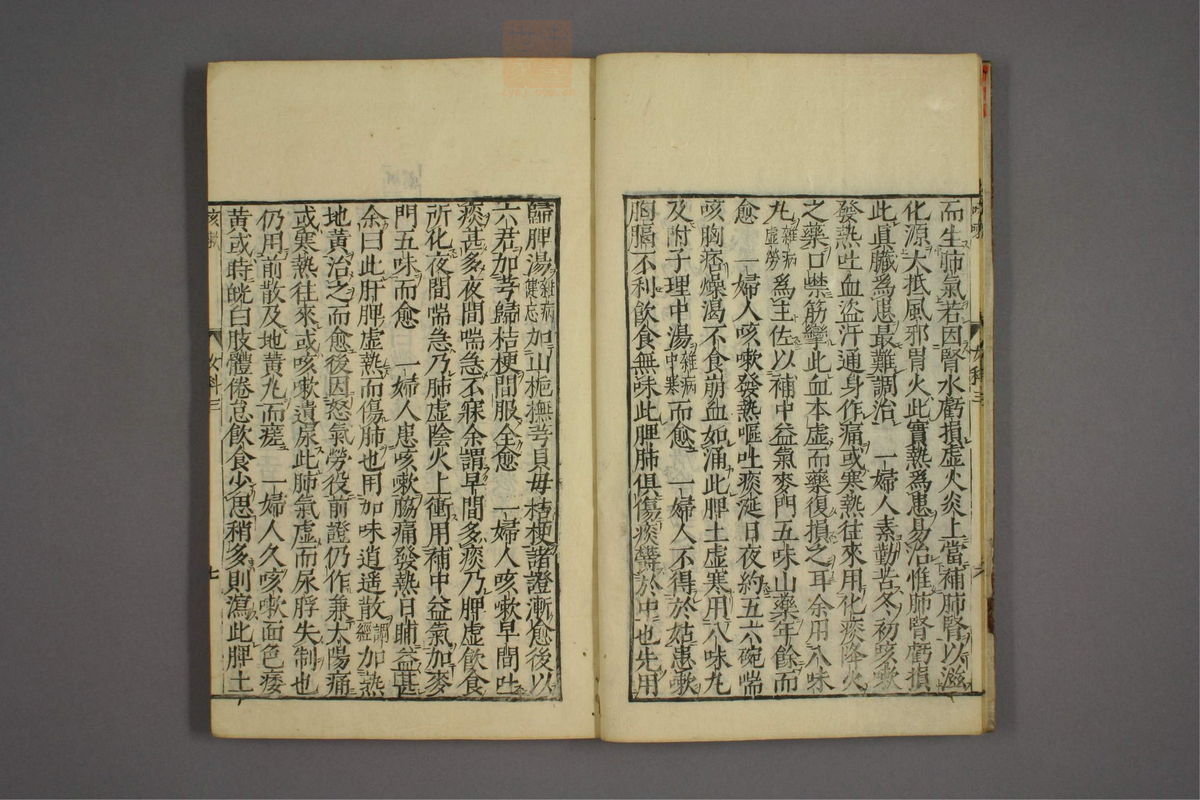 而生肺氣若因腎水虧損虛火炎上當補肺腎以滋
化源大抵風邪胃火此實熱爲患易治惟肺腎虧損
此眞臟爲患最難調治 一婦人素勤苦冬初咳嗽
發熱吐血盜汗通身作痛或寒熱往來用化痰降火
之藥口噤筋攣此血本虛而藥復損之耳余用八味
丸雜病虛勞爲主佐以補中益氣麥門五味山藥年餘而
愈 一婦人咳嗽發熱嘔吐痰涎日夜約五六碗喘
咳胸痞燥渴不食崩血如涌此脾土虛寒用八味丸
及附子理中湯雜病中寒而愈 一婦人不得於姑患嗽
胸膈不利飲食無味此脾肺俱傷痰鬱於中也先用
女科三
歸脾湯雜病健忘加山梔撫芎貝母桔梗諸證漸愈後以
六君加芎歸桔梗間服全愈 一婦人咳嗽早間吐
痰甚多夜間喘急不寐余謂早間多痰乃脾虛飲食
所化夜間喘急乃肺虛陰火上衝用補中益氣加麥
門五味而愈 一婦人患咳嗽脇痛發熱日晡益甚
余曰此肝脾虛熱而傷肺也用加味逍遥散調經加熱
地黃治之而愈後因怒氣勞役前證仍作兼太陽痛
或寒熱往來或咳嗽遺尿此肺氣虛而尿脬失制也
仍用前散及地黃丸而瘥 一婦人久咳嗽面色痿
黃或時㿠白肢體倦怠飲食少思稍多則瀉此脾土
咳嗽
女科三
七